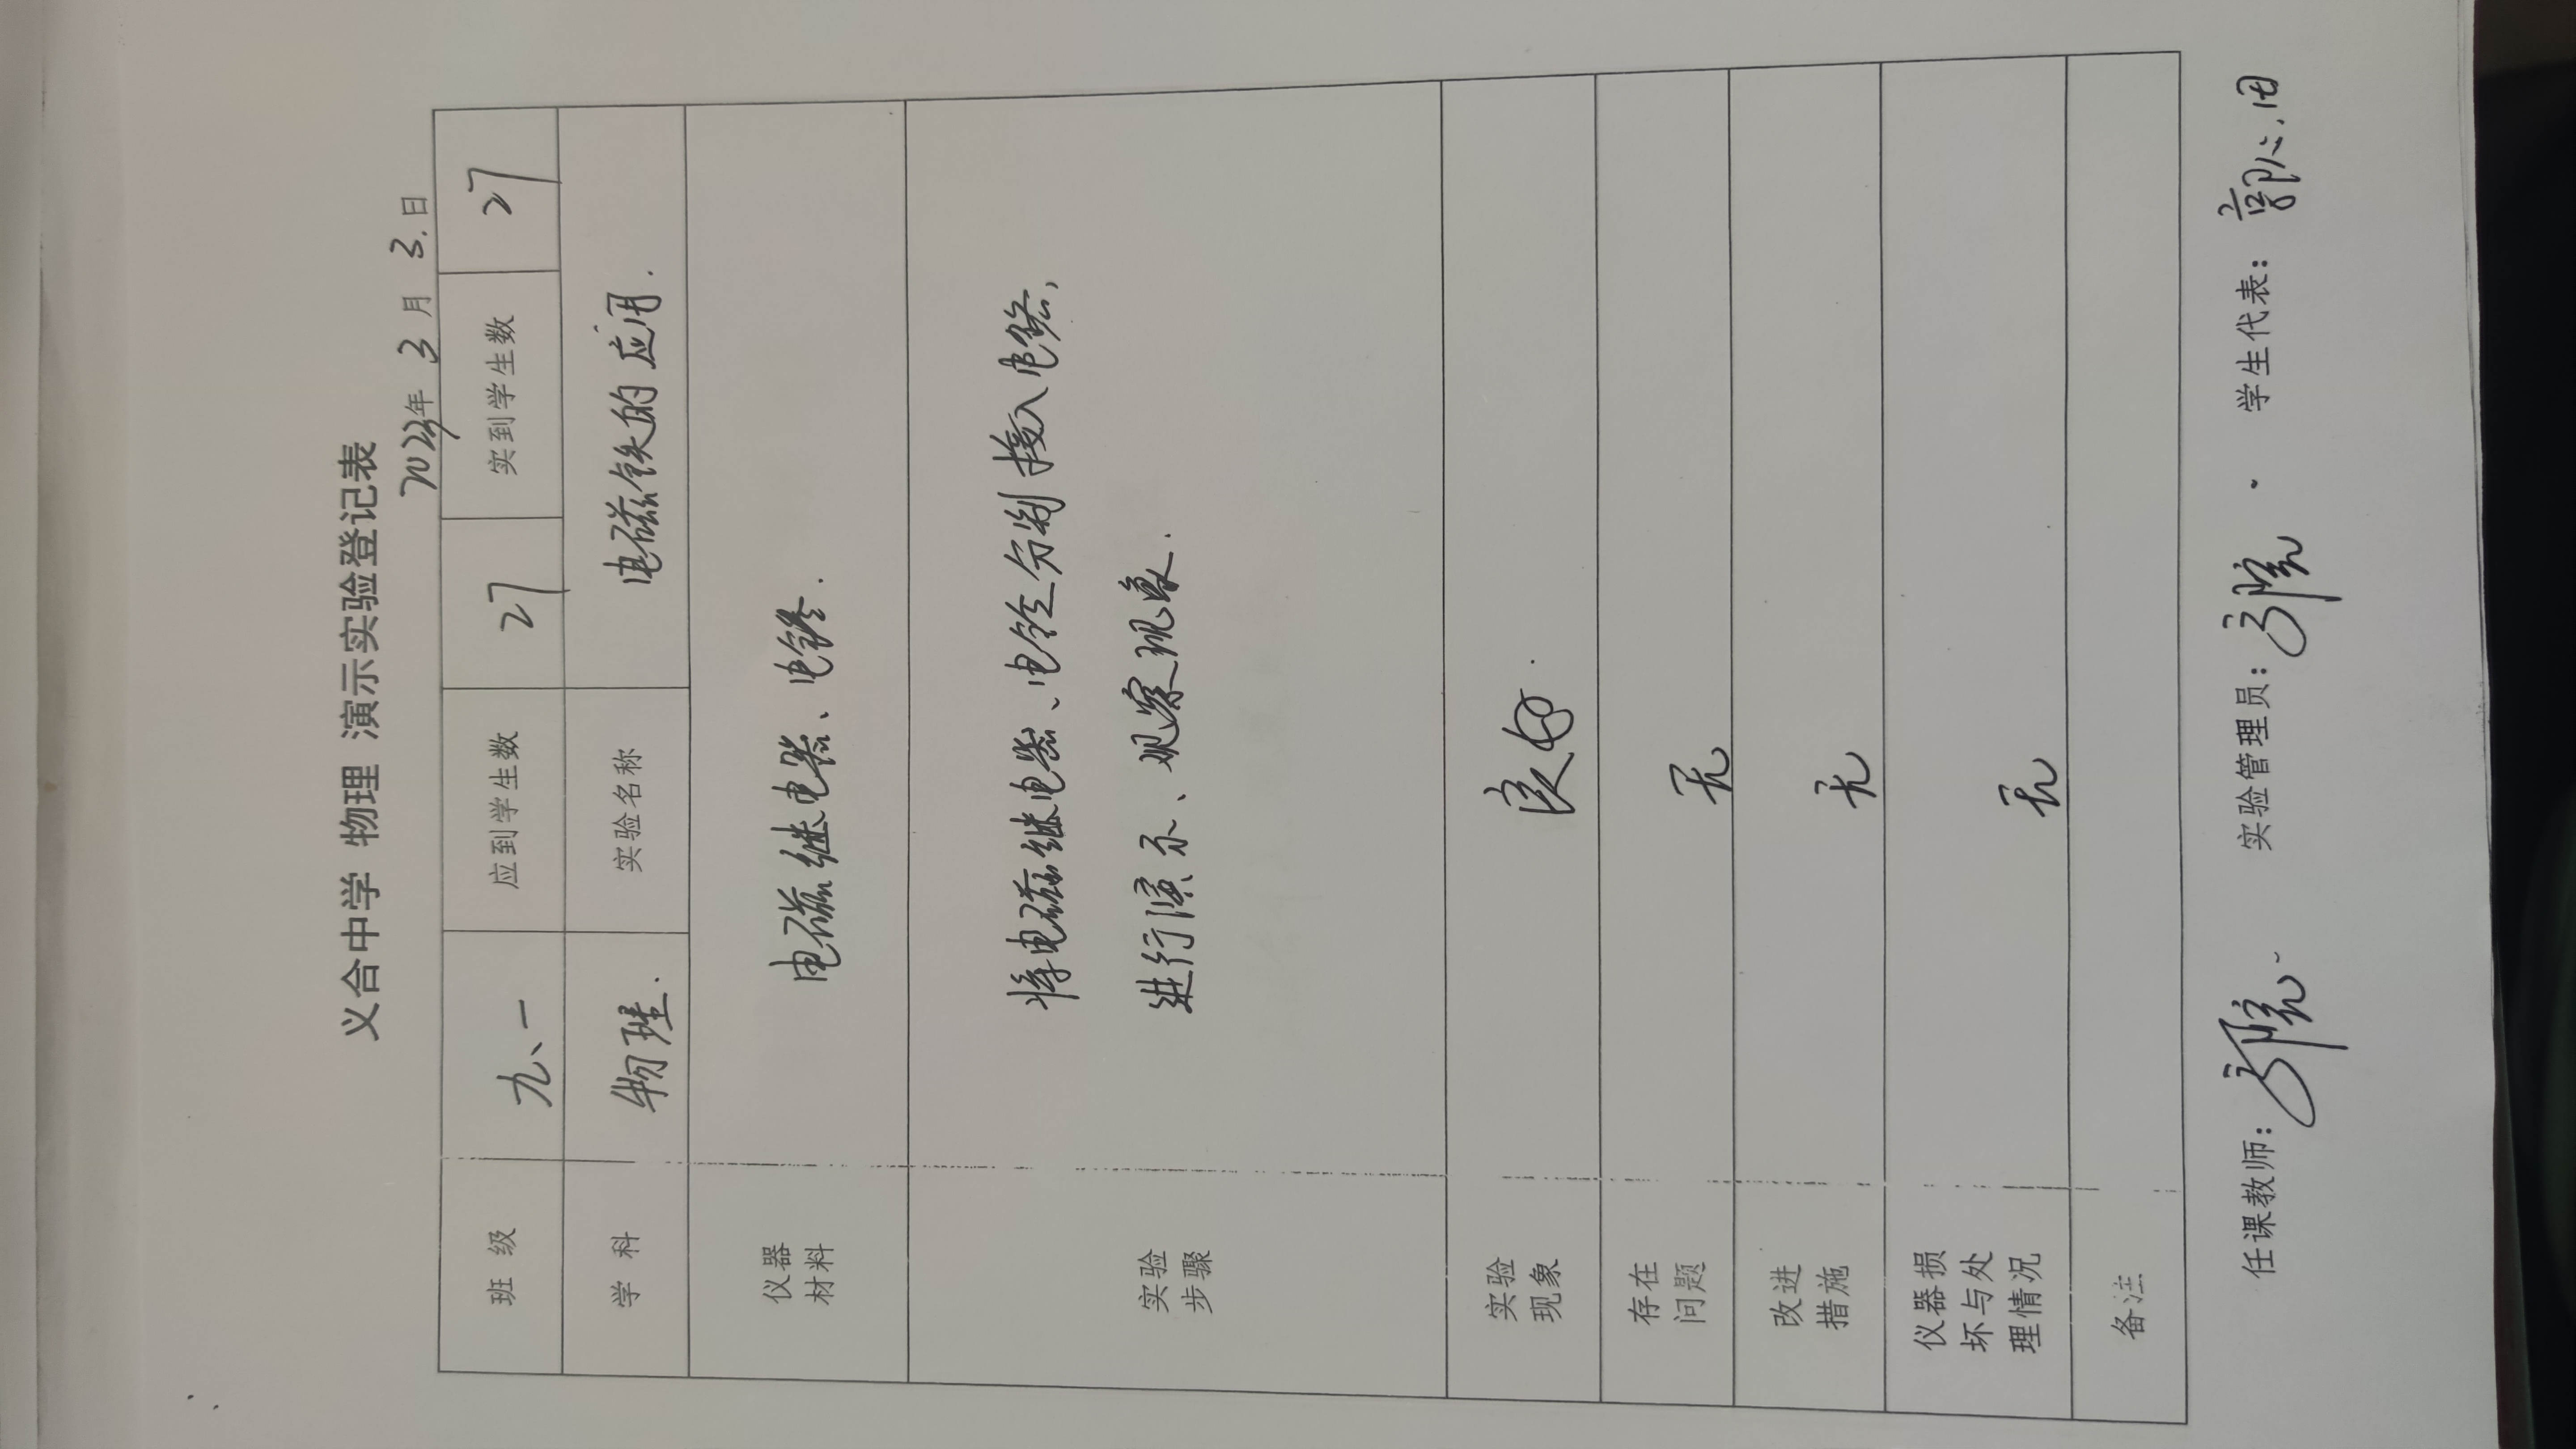 义合中学 物理 演示实验登记表
2023年 3 月 3.日
班 级 九、一 应到学生数 27 实到学生数 27
学 科 物理. 实验名称 电磁铁的应用.
仪器
材料
电磁继电器、电铃.
实验
步骤
将电磁继电器、电铃分别接入电路,
进行演示、观察现象.
实验
现象
良好.
存在
问题
无
改进
措施
无
仪器损
坏与处
理情况
无
备注
任课教师: 实验管理员: 学生代表: